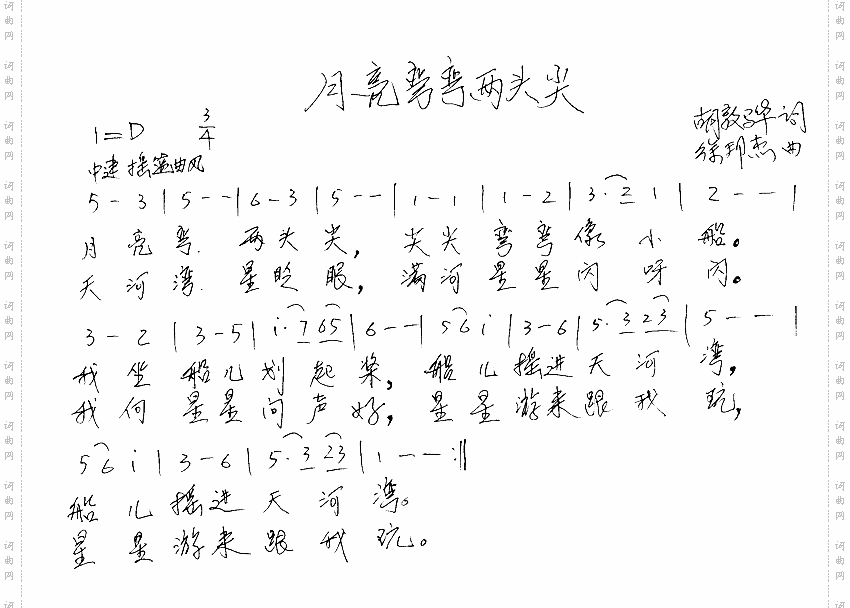 月亮弯弯两头尖
1=D 3/4
胡敦骅 词
中速 摇篮曲风
徐邦杰 曲
5 - 3 | 5 - - | 6 - 3 | 5 - - | 1 - 1 | 1 - 2 | 3· 2 1 | 2 - - |
月亮弯 两头尖，尖尖弯弯像小船。
天河湾 星眨眼，满河星星闪呀闪。
3 - 2 | 3 - 5 | i· 7 6 5 | 6 - - | 5 6 i | 3 - 6 | 5· 3 2 3 | 5 - - |
我坐船儿划起桨，船儿摇进天河湾，
我向星星问声好，星星游来跟我玩，
5 6 i | 3 - 6 | 5· 3 2 3 | 1 - - :||
船儿摇进天河湾。
星星游来跟我玩。
词曲网